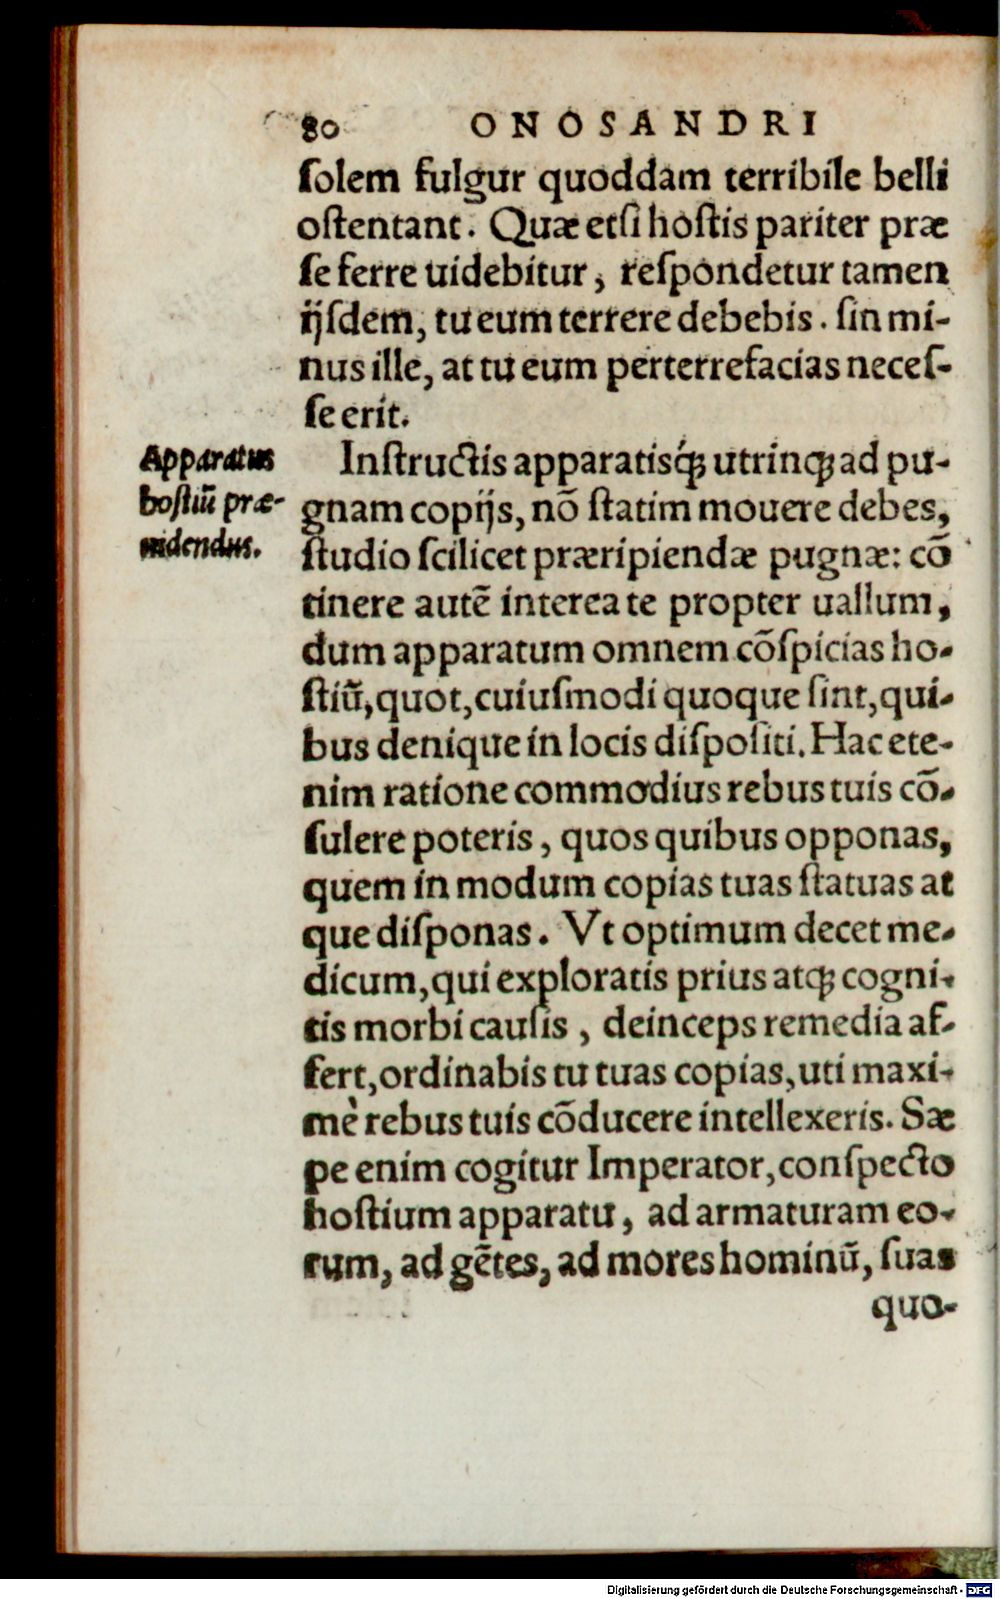 80 ONOSANDRI
ſolem fulgur quoddam terribile belli
oſtentant. Quæ etſi hoſtis pariter præ
ſe ferre uidebitur, reſpondetur tamen
ijſdem, tu eum terrere debebis. ſin mi-
nus ille, at tu eum perterrefacias neceſ-
ſe erit.
Apparatus
hoſtiũ præ-
uidendus.
Inſtructis apparatisq́; utrinq; ad pu-
gnam copijs, nõ ſtatim mouere debes,
ſtudio ſcilicet præripiendæ pugnæ: cõ
tinere autẽ interea te propter uallum,
dum apparatum omnem cõſpicias ho-
ſtiũ, quot, cuiuſmodi quoque ſint, qui-
bus denique in locis diſpoſiti. Hac ete-
nim ratione commodius rebus tuis cõ-
ſulere poteris, quos quibus opponas,
quem in modum copias tuas ſtatuas at
que diſponas. Vt optimum decet me-
dicum, qui exploratis prius atq; cogni-
tis morbi cauſis, deinceps remedia af-
fert, ordinabis tu tuas copias, uti maxi-
mè rebus tuis cõducere intellexeris. Sæ
pe enim cogitur Imperator, conſpecto
hoſtium apparatu, ad armaturam eo-
rum, ad gẽtes, ad mores hominũ, ſuas
quo-
Digitalisierung gefördert durch die Deutsche Forschungsgemeinschaft - DFG